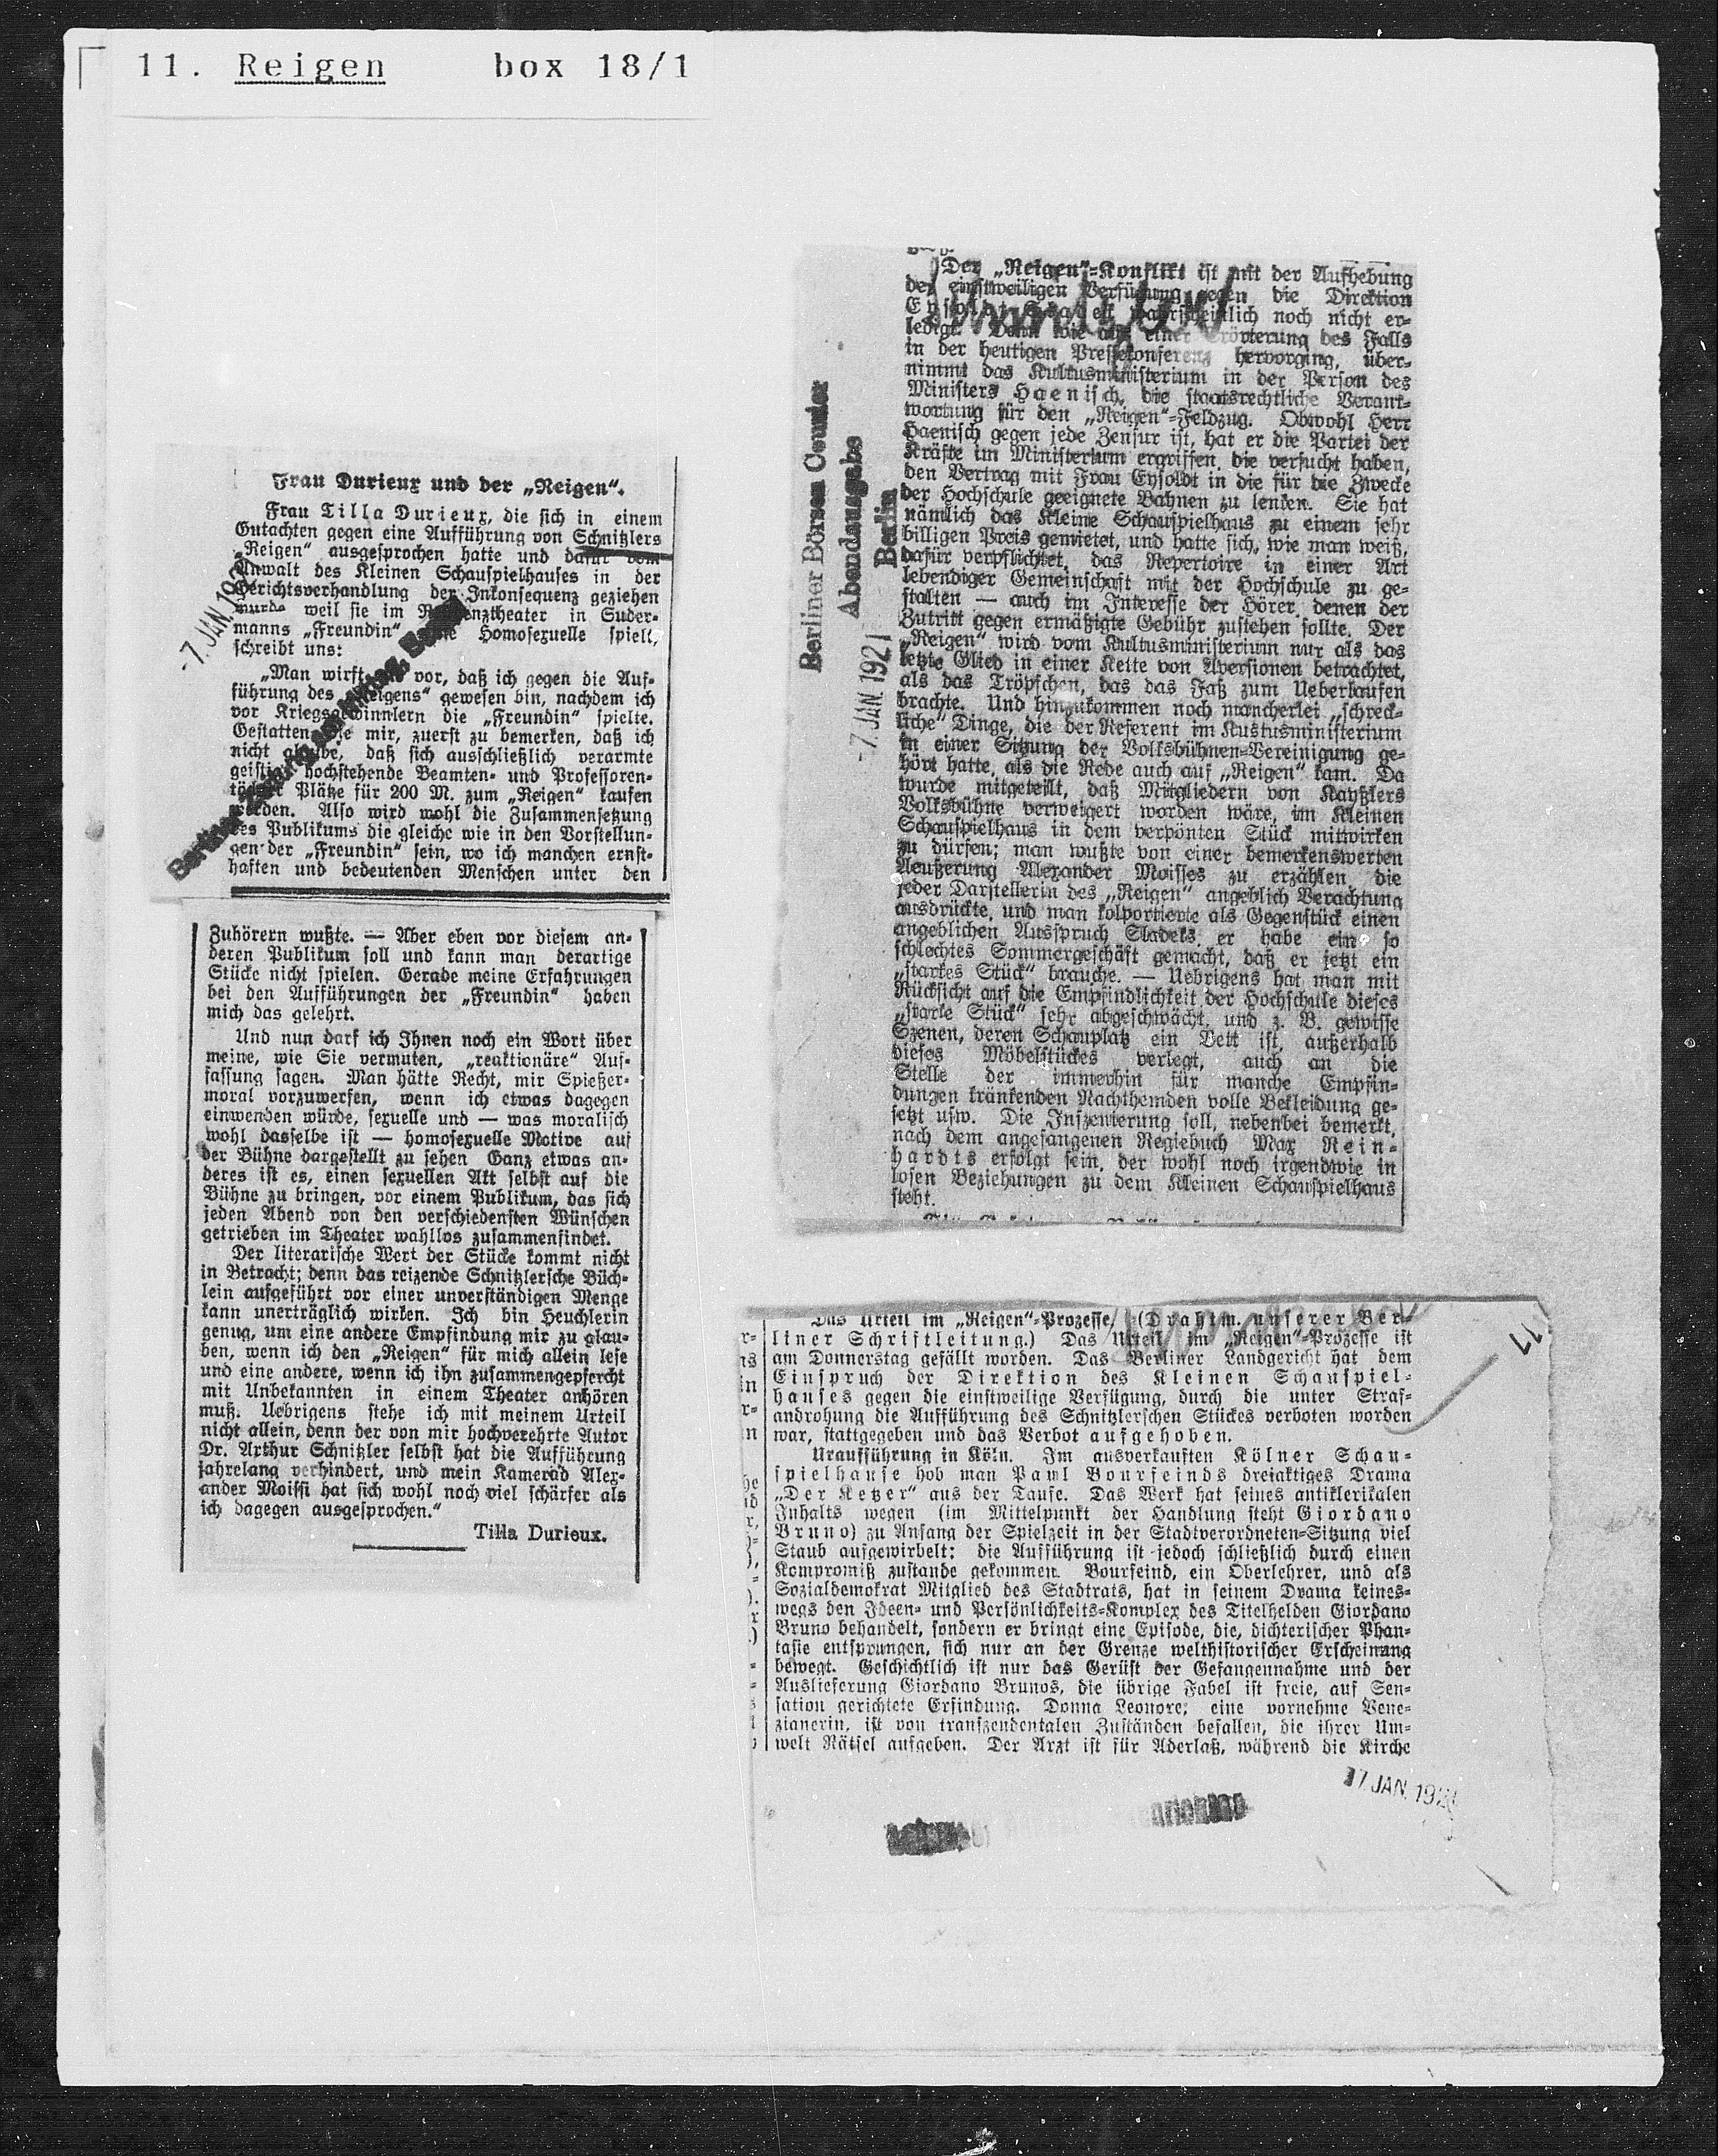 11. Reigen box 18/1
Frau Durieux und der „Reigen“.
Frau Tilla Durieux, die sich in einem
Gutachten gegen eine Aufführung von Schnitzlers
„Reigen“ ausgesprochen hatte und dafür vom
Anwalt des Kleinen Schauspielhauses in der
Gerichtsverhandlung der Inkonsequenz geziehen
wurde weil sie im Residenztheater in Suder-
manns „Freundin“ eine Homosexuelle spielt,
schreibt uns:
„Man wirft mir vor, daß ich gegen die Auf-
führung des „Reigens“ gewesen bin, nachdem ich
vor Kriegsgewinnlern die „Freundin“ spielte.
Gestatten Sie mir, zuerst zu bemerken, daß ich
nicht glaube, daß sich ausschließlich verarmte
geistig hochstehende Beamten- und Professoren-
töchter Plätze für 200 M. zum „Reigen“ kaufen
werden. Also wird wohl die Zusammensetzung
des Publikums die gleiche wie in den Vorstellun-
gen der „Freundin“ sein, wo ich manchen ernst-
haften und bedeutenden Menschen unter den
Zuhörern wußte. — Aber eben vor diesem an-
deren Publikum soll und kann man derartige
Stücke nicht spielen. Gerade meine Erfahrungen
bei den Aufführungen der „Freundin“ haben
mich das gelehrt.
Und nun darf ich Ihnen noch ein Wort über
meine, wie Sie vermuten, „reaktionäre“ Auf-
fassung sagen. Man hätte Recht, mir Spießer-
moral vorzuwerfen, wenn ich etwas dagegen
einwenden würde, sexuelle und — was moralisch
wohl dasselbe ist — homosexuelle Motive auf
der Bühne dargestellt zu sehen Ganz etwas an-
deres ist es, einen sexuellen Akt selbst auf die
Bühne zu bringen, vor einem Publikum, das sich
jeden Abend von den verschiedensten Wünschen
getrieben im Theater wahllos zusammenfindet.
Der literarische Wert der Stücke kommt nicht
in Betracht; denn das reizende Schnitzlersche Büch-
lein aufgeführt vor einer unverständigen Menge
kann unerträglich wirken. Ich bin Heuchlerin
genug, um eine andere Empfindung mir zu glau-
ben, wenn ich den „Reigen“ für mich allein lese
und eine andere, wenn ich ihn zusammengepfercht
mit Unbekannten in einem Theater anhören
muß. Uebrigens stehe ich mit meinem Urteil
nicht allein, denn der von mir hochverehrte Autor
Dr. Arthur Schnitzler selbst hat die Aufführung
jahrelang verhindert, und mein Kamerad Alex-
ander Moissi hat sich wohl noch viel schärfer als
ich dagegen ausgesprochen.“
Tilla Durieux.
-7. JAN. 192
Berliner Börsen Courier
Abendausgabe
Berlin
-7. JAN. 1921
Der „Reigen“-Konflikt ist mit der Aufhebung
der einstweiligen Verfügung gegen die Direktion
Eysoldt-Sladek wahrscheinlich noch nicht er-
ledigt. Denn wie aus einer Erörterung des Falls
in der heutigen Pressekonferenz hervorging, über-
nimmt das Kultusministerium in der Person des
Ministers Haenisch, die staatsrechtliche Verant-
wortung für den „Reigen“-Feldzug. Obwohl Herr
Haenisch gegen jede Zensur ist, hat er die Partei der
Kräfte im Ministerium ergriffen, die versucht haben,
den Vertrag mit Frau Eysoldt in die für die Zwecke
der Hochschule geeignete Bahnen zu lenken. Sie hat
nämlich das Kleine Schauspielhaus zu einem sehr
billigen Preis gemietet, und hatte sich, wie man weiß,
dafür verpflichtet, das Repertoire in einer Art
lebendiger Gemeinschaft mit der Hochschule zu ge-
stalten — auch im Interesse der Hörer, denen der
Zutritt gegen ermäßigte Gebühr zustehen sollte. Der
„Reigen“ wird vom Kultusministerium nur als das
letzte Glied in einer Kette von Aversionen betrachtet,
als das Tröpfchen, das das Faß zum Ueberlaufen
brachte. Und hinzukommen noch mancherlei „schreck-
liche“ Dinge, die der Referent im Kustusministerium
in einer Sitzung der Volksbühnen-Vereinigung ge-
hört hatte, als die Rede auch auf „Reigen“ kam. Da
wurde mitgeteilt, daß Mitgliedern von Kayßlers
Volksbühne verweigert worden wäre, im Kleinen
Schauspielhaus in dem verpönten Stück mitwirken
zu dürfen; man wußte von einer bemerkenswerten
Aeußerung Alexander Moissis zu erzählen die
jeder Darstellerin des „Reigen“ angeblich Verachtung
ausdrückte, und man kolportierte als Gegenstück einen
angeblichen Ausspruch Sladeks, er habe ein so
schlechtes Sommergeschäft gemacht, daß er jetzt ein
„starkes Stück“ brauche. — Uebrigens hat man mit
Rücksicht auf die Empfindlichkeit der Hochschule dieses
„starke Stück“ sehr abgeschwächt, und z. B. gewisse
Szenen, deren Schauplatz ein Bett ist, außerhalb
dieses Möbelstückes verlegt, auch an die
Stelle der immerhin für manche Empfin-
dungen kränkenden Nachthemden volle Bekleidung ge-
setzt usw. Die Inszenierung soll, nebenbei bemerkt,
nach dem angefangenen Regiebuch Max Rein-
hardts erfolgt sein, der wohl noch irgendwie in
losen Beziehungen zu dem Kleinen Schauspielhaus
steht.
Das Urteil im „Reigen“-Prozesse. (Drahtm. unserer Ber-
liner Schriftleitung.) Das Urteil im „Reigen“-Prozesse ist
am Donnerstag gefällt worden. Das Berliner Landgericht hat dem
Einspruch der Direktion des Kleinen Schauspiel-
hauses gegen die einstweilige Verfügung, durch die unter Straf-
androhung die Aufführung des Schnitzlerschen Stückes verboten worden
war, stattgegeben und das Verbot aufgehoben.
Uraufführung in Köln. Im ausverkauften Kölner Schau-
spielhause hob man Paul Bourfeinds dreiaktiges Drama
„Der Ketzer“ aus der Taufe. Das Werk hat seines antiklerikalen
Inhalts wegen (im Mittelpunkt der Handlung steht Giordano
Bruno) zu Anfang der Spielzeit in der Stadtverordneten-Sitzung viel
Staub aufgewirbelt; die Aufführung ist jedoch schließlich durch einen
Kompromiß zustande gekommen. Bourfeind, ein Oberlehrer, und als
Sozialdemokrat Mitglied des Stadtrats, hat in seinem Drama keines-
wegs den Ideen- und Persönlichkeits-Komplex des Titelhelden Giordano
Bruno behandelt, sondern er bringt eine Episode, die, dichterischer Phan-
tasie entsprungen, sich nur an der Grenze welthistorischer Erscheinung
bewegt. Geschichtlich ist nur das Gerüst der Gefangennahme und der
Auslieferung Giordano Brunos, die übrige Fabel ist freie, auf Sen-
sation gerichtete Erfindung. Donna Leonore, eine vornehme Vene-
zianerin, ist von transzendentalen Zuständen befallen, die ihrer Um-
welt Rätsel aufgeben. Der Arzt ist für Aderlaß, während die Kirche
17
7 JAN. 192